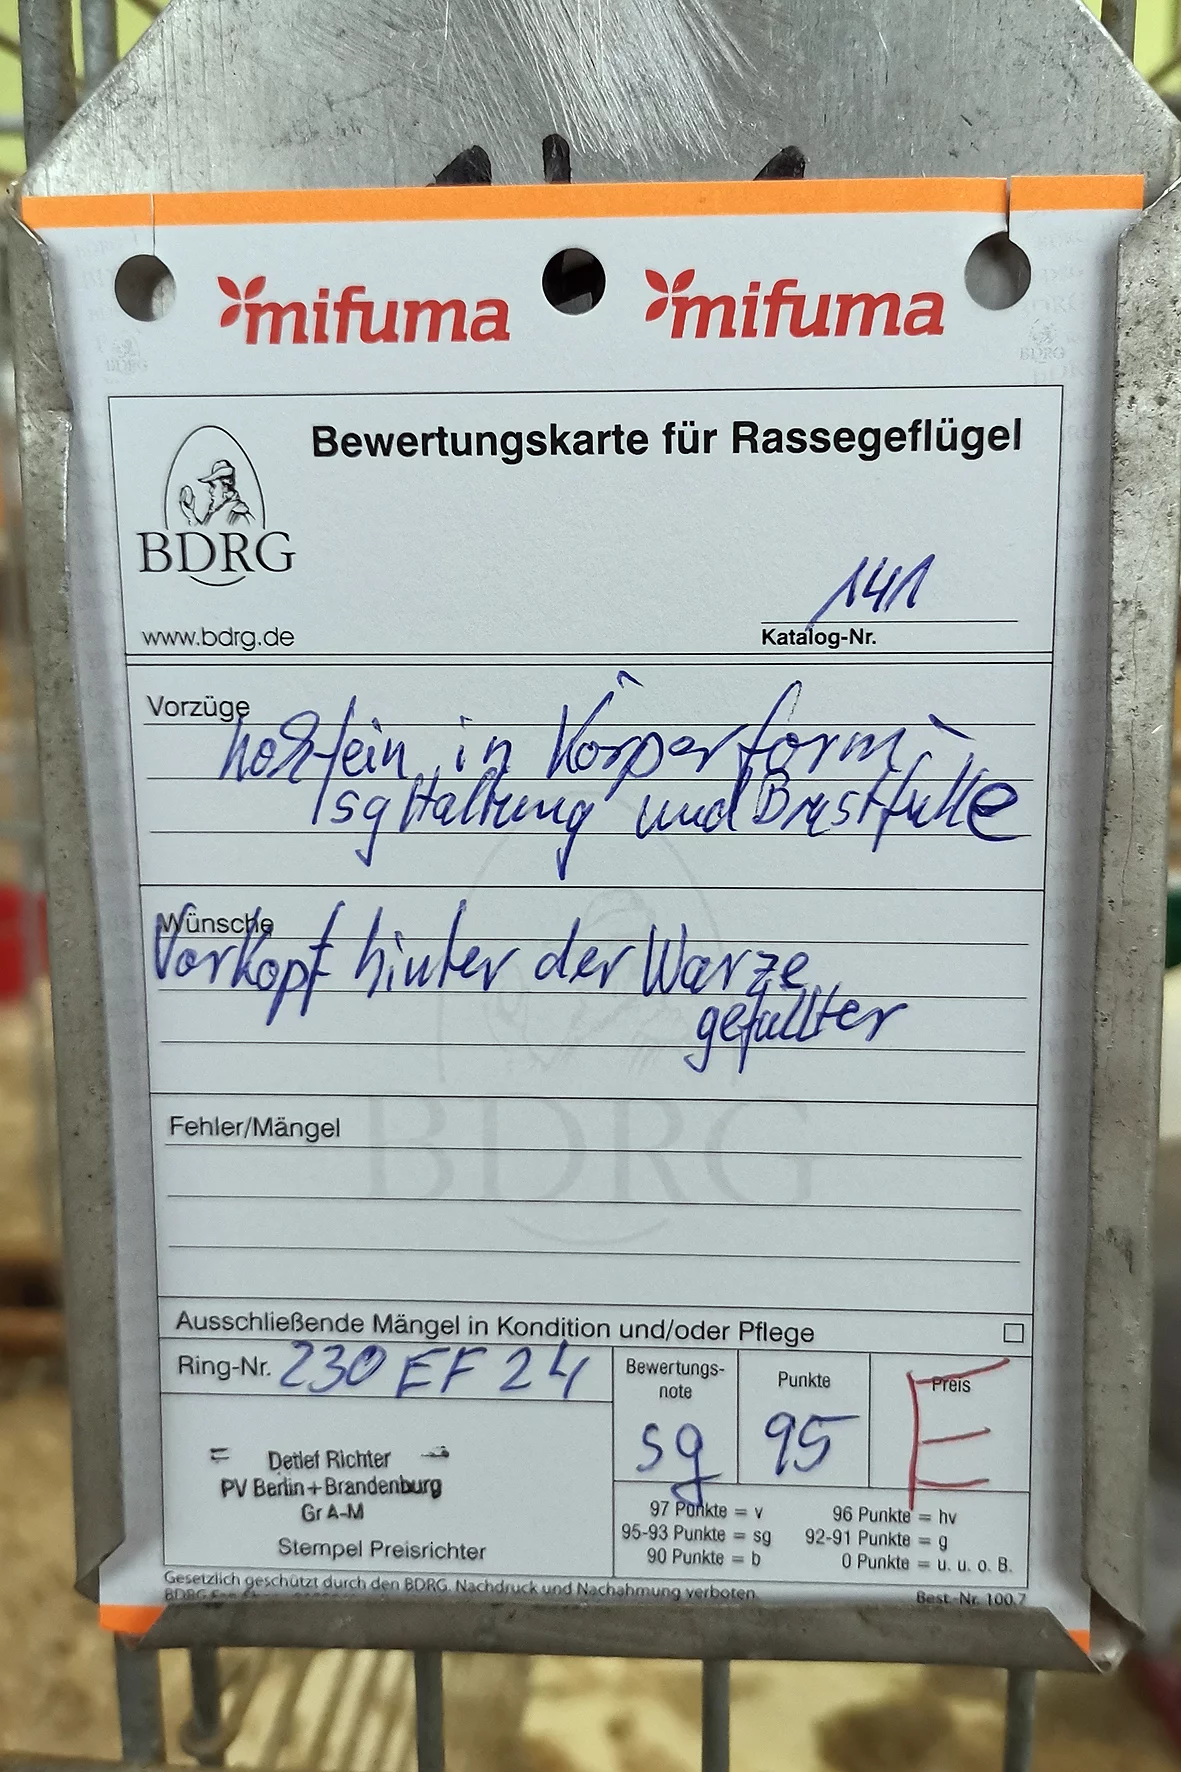 mifuma mifuma
Bewertungskarte für Rassegeflügel
BDRG
www.bdrg.de
141
Katalog-Nr.
Vorzüge
hochfein in Körperform
sg Haltung und Brustfülle
Wünsche
Vorkopf hinter der Warze
gefüllter
Fehler/Mängel
BDRG
Ausschließende Mängel in Kondition und/oder Pflege
Ring-Nr. 230 EF 24
Bewertungs-
note
sg
Punkte
95
Preis
E
Detlef Richter
PV Berlin+Brandenburg
Gr A-M
Stempel Preisrichter
97 Punkte = v 96 Punkte = hv
95-93 Punkte = sg 92-91 Punkte = g
90 Punkte = b 0 Punkte = u. u. o. B.
Gesetzlich geschützt durch den BDRG. Nachdruck und Nachahmung verboten.
Best.-Nr. 100.7